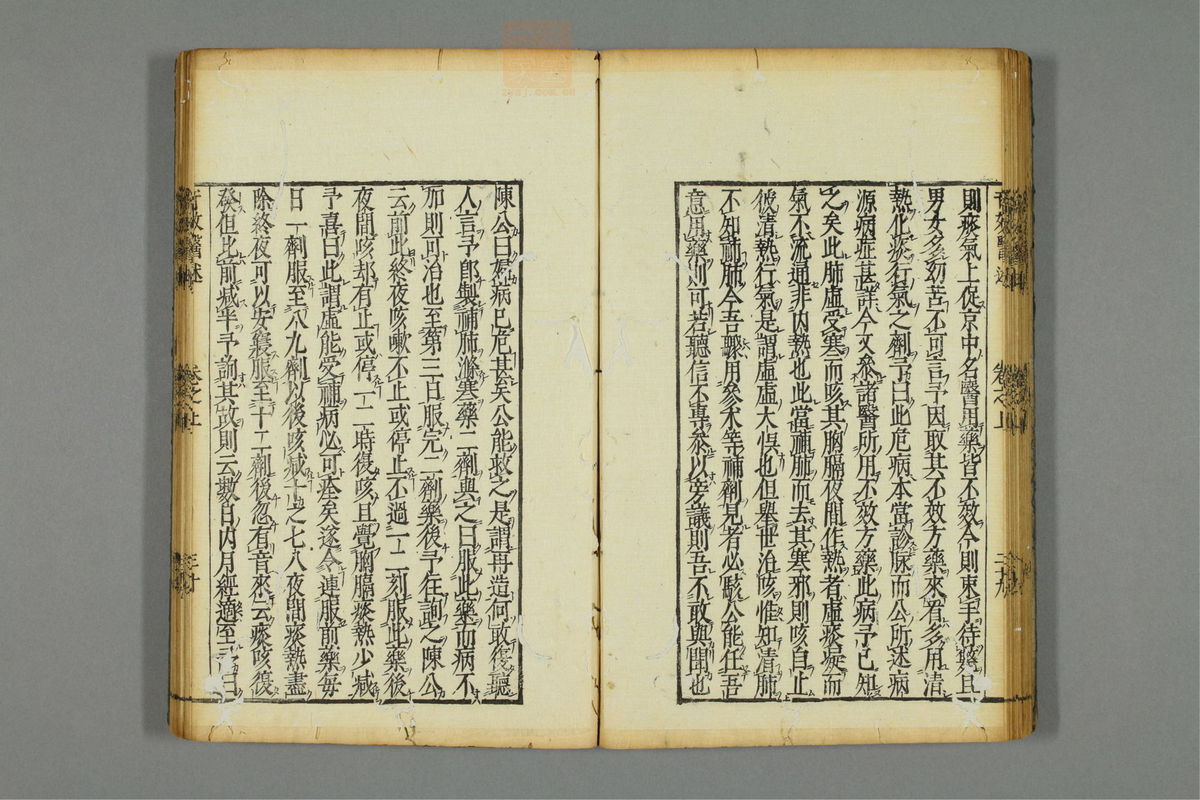 則痰氣上促京中名醫用藥皆不效今則束手待斃且
男女多幼苦不可言予因取其不效方藥來看多用清
熱化痰行氣之劑予曰此危病本當診脉而公所述病
源病症甚詳今又參諸醫所用不效方藥此病予已知
之矣此肺虛受寒而咳其胸膈夜間作熱者虛痰凝而
氣不流通非内熱也此當補肺而去其寒邪則咳自止
彼清熱行氣是謂虛虛大悞也但舉世治咳惟知清肺
不知補肺今吾驟用參朮等補劑見者必駭公能任吾
意用藥則可若聽信不專參以旁議則吾不敢與聞也
陳公曰病已危甚矣公能救之是謂再造何敢復聽
人言予卽製補肺滌寒藥二劑與之曰服此藥而病不
加則可治也至第三日服完二劑藥後予往詢之陳公
云前此終夜咳嗽不止或停止不過一二刻服此藥後
夜間咳却有止或停一二時復咳且覺胸膈痰熱少减
予喜曰此謂虛能受補病必可痊矣遂令連服前藥每
日一劑服至八九劑以後咳减十之七八夜間痰熱盡
除終夜可以安寢服至十二劑後忽有音來云痰咳復
發但比前减半予詢其故則云數日内月經適至予曰
奇效醫述
卷之上
三十
奇效醫述
卷之上
二十九